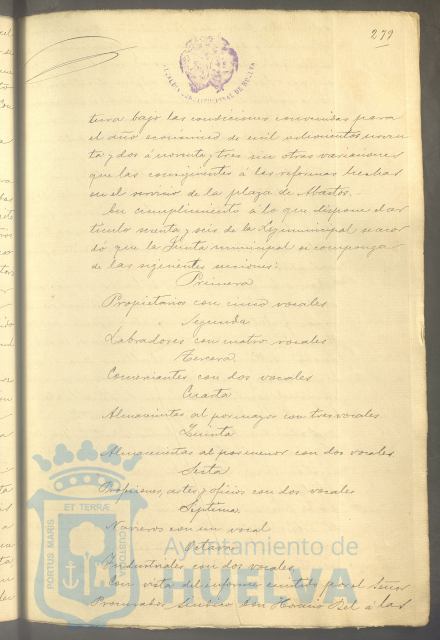 279
ALCALDIA CONSTITUCIONAL DE HUELVA
tura bajo las condiciones convenidas para
el año económico de mil ochocientos noven
ta y dos á noventa y tres sin otras variaciones
que las consiguientes á las reformas hechas
en el servicio de la plaza de Abastos.
En cumplimiento á lo que dispone el ar
tículo sesenta y seis de la Ley municipal se acor
dó que la Junta municipal se componga
de las siguientes secciones:
Primera
Propietarios con cinco vocales
Segunda
Labradores con cuatro vocales
Tercera
Comerciantes con dos vocales
Cuarta
Almacenistas al por mayor con tres vocales
Quinta
Almacenistas al por menor con dos vocales
Sesta
Profesiones, artes y oficios con dos vocales
Septima
Navieros con un vocal
Octava
Industriales con dos vocales
Con vista del informe emitido por el Señor
Procurador Síndico Don Horacio Bel á las
PORTUS MARIS ET TERRÆ CUSTODIA
Ayuntamiento de
HUELVA